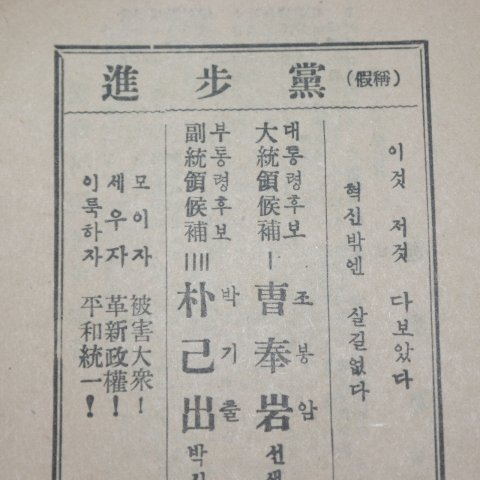 進步黨 (假稱)
이것 저것 다보았다
혁신밖엔 살길없다
대통령후보 조봉암
大統領候補 | 曺奉岩 선생
부통령후보 박기출
副統領候補 |||| 朴己出 박
모이자 被害大衆!
세우자 革新政權!
이룩하자 平和統一!